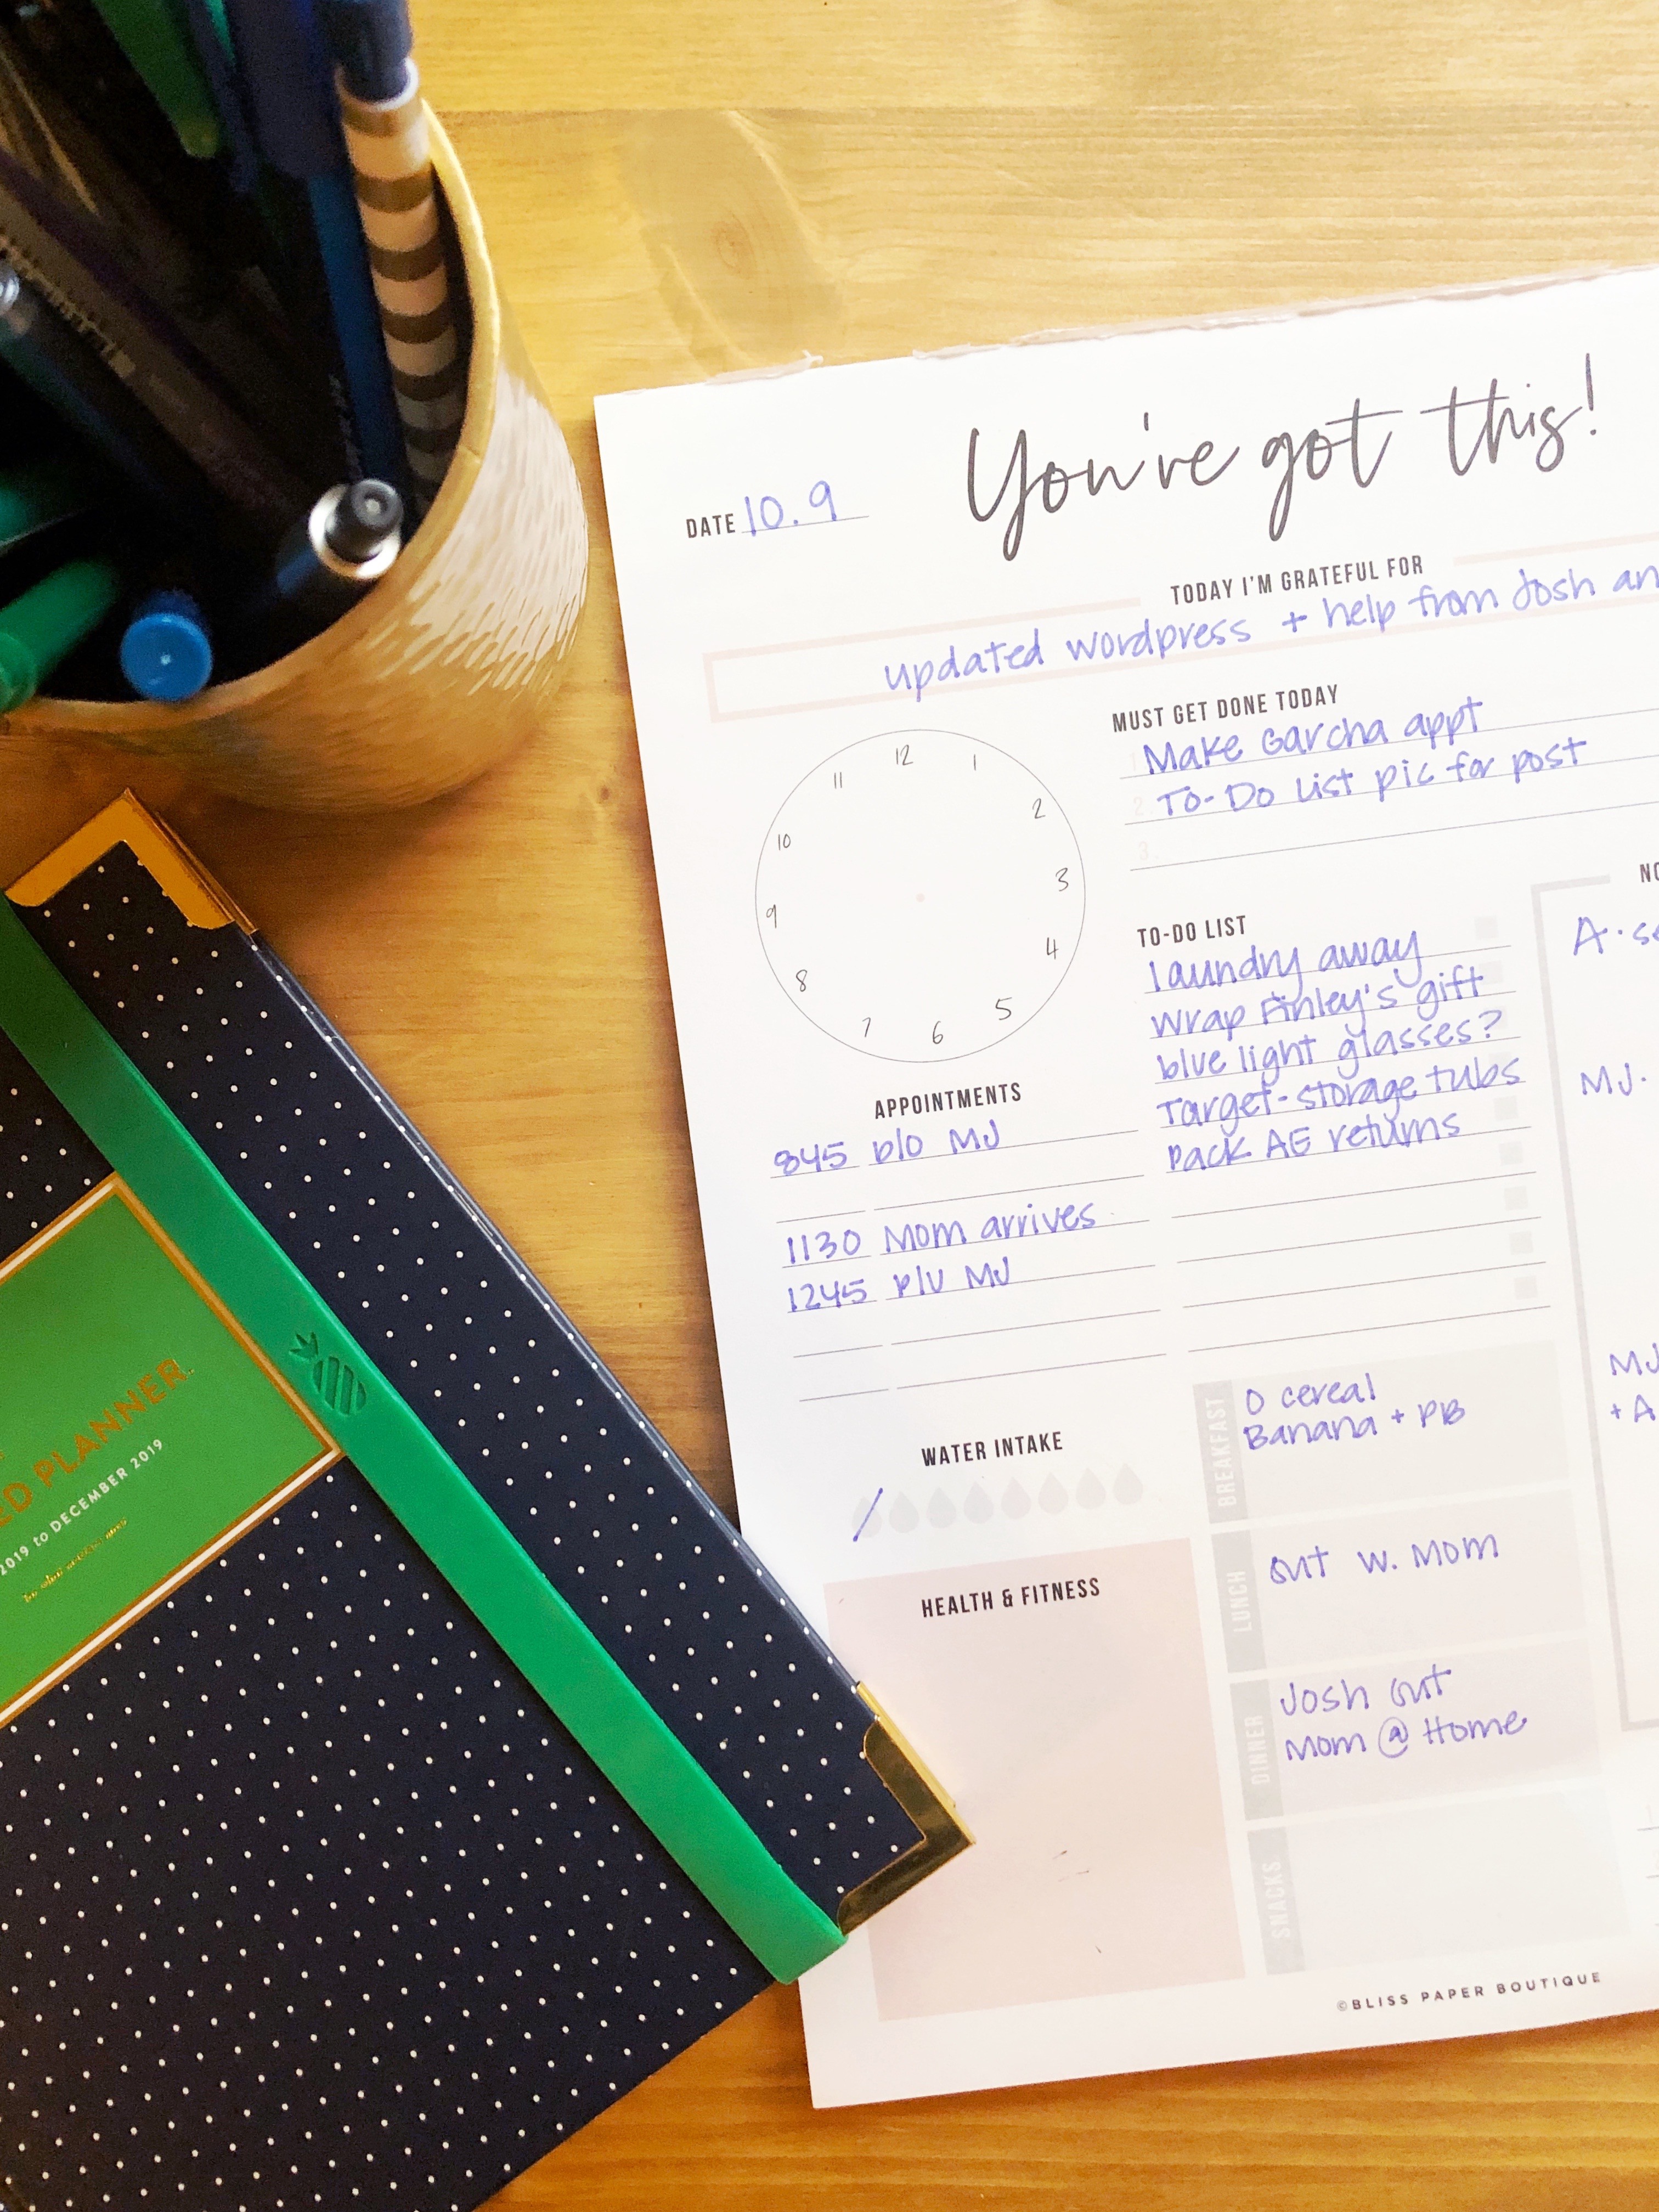 You've got this!
DATE 10.9
TODAY I'M GRATEFUL FOR
updated wordpress + help from Josh an
12
1
2
3
4
5
6
7
8
9
10
11
MUST GET DONE TODAY
1. Make Garcha appt
2. To-Do List pic for post
3.
TO-DO LIST
laundry away
wrap Finley's gift
blue light glasses?
Target-storage tubs
pack AE returns
NO
A.
MJ.
MJ
+ A
APPOINTMENTS
845 D/O MJ
1130 Mom arrives
1245 P/U MJ
WATER INTAKE
HEALTH & FITNESS
BREAKFAST
O cereal
Banana + PB
LUNCH
out w. Mom
DINNER
Josh out
Mom @ Home
SNACKS
©BLISS PAPER BOUTIQUE
ED PLANNER
2019 to DECEMBER 2019